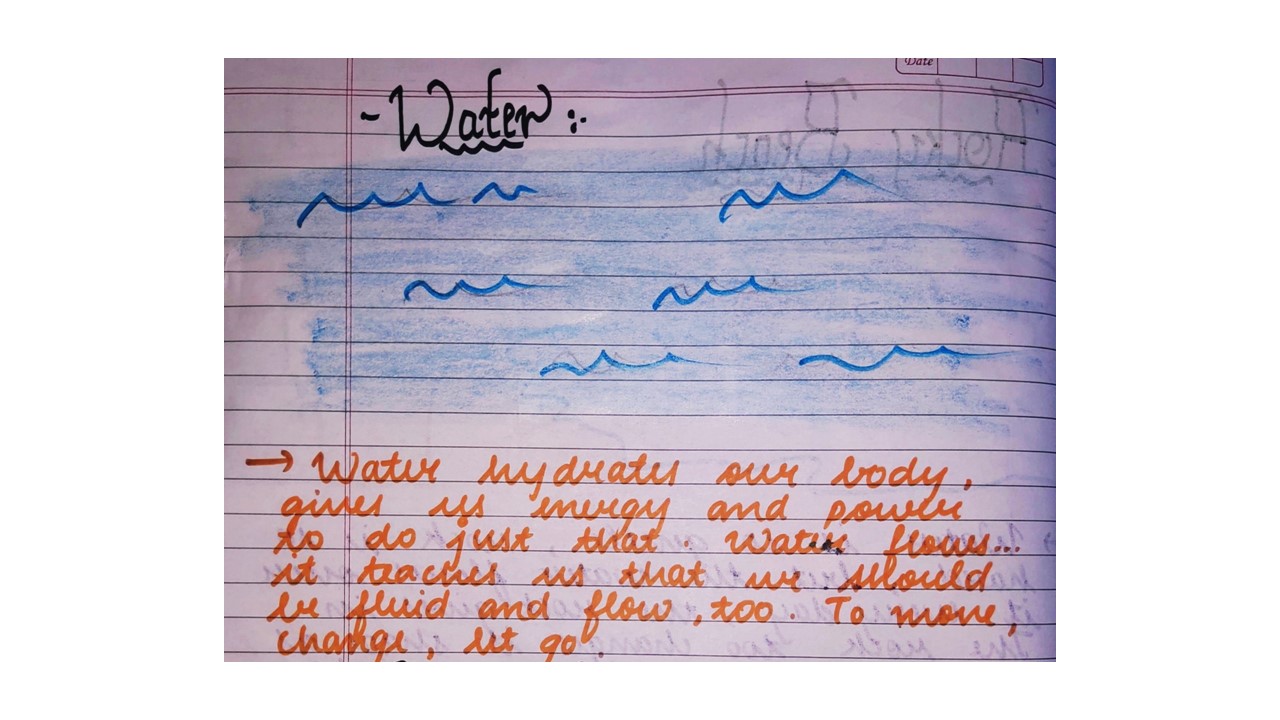 Date
- Water :-
→ Water hydrates our body,
gives us energy and power
to do just that. Water flows...
it teaches us that we should
be fluid and flow, too. To move,
change, let go.